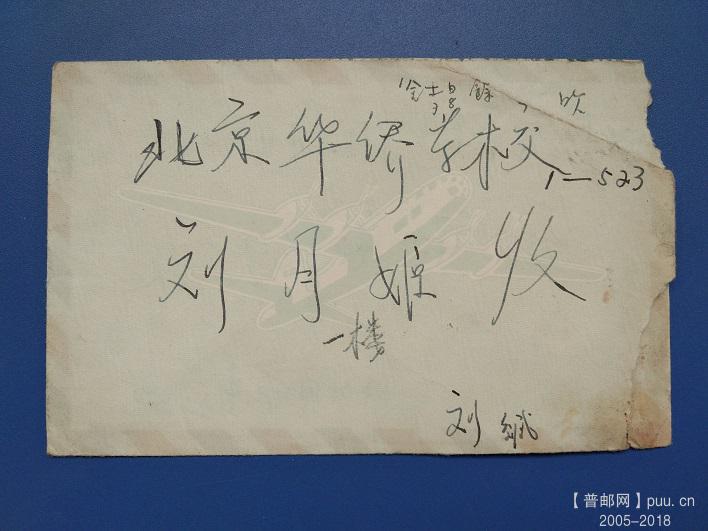 北京华侨学校
1—523
刘月姬 收
一楼
刘
【普邮网】puu.cn
2005-2018